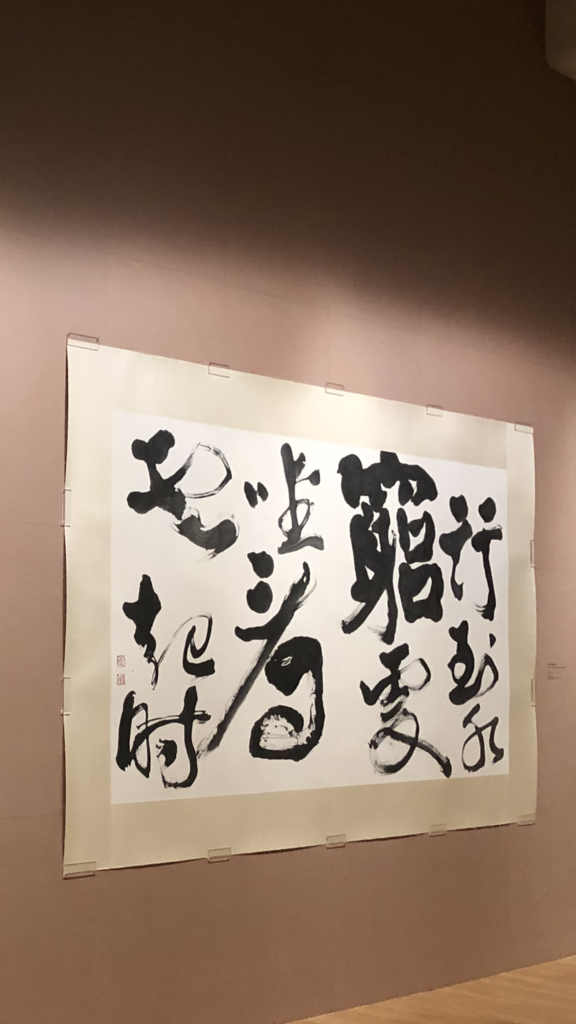 行到水
窮處
坐看
雲起時